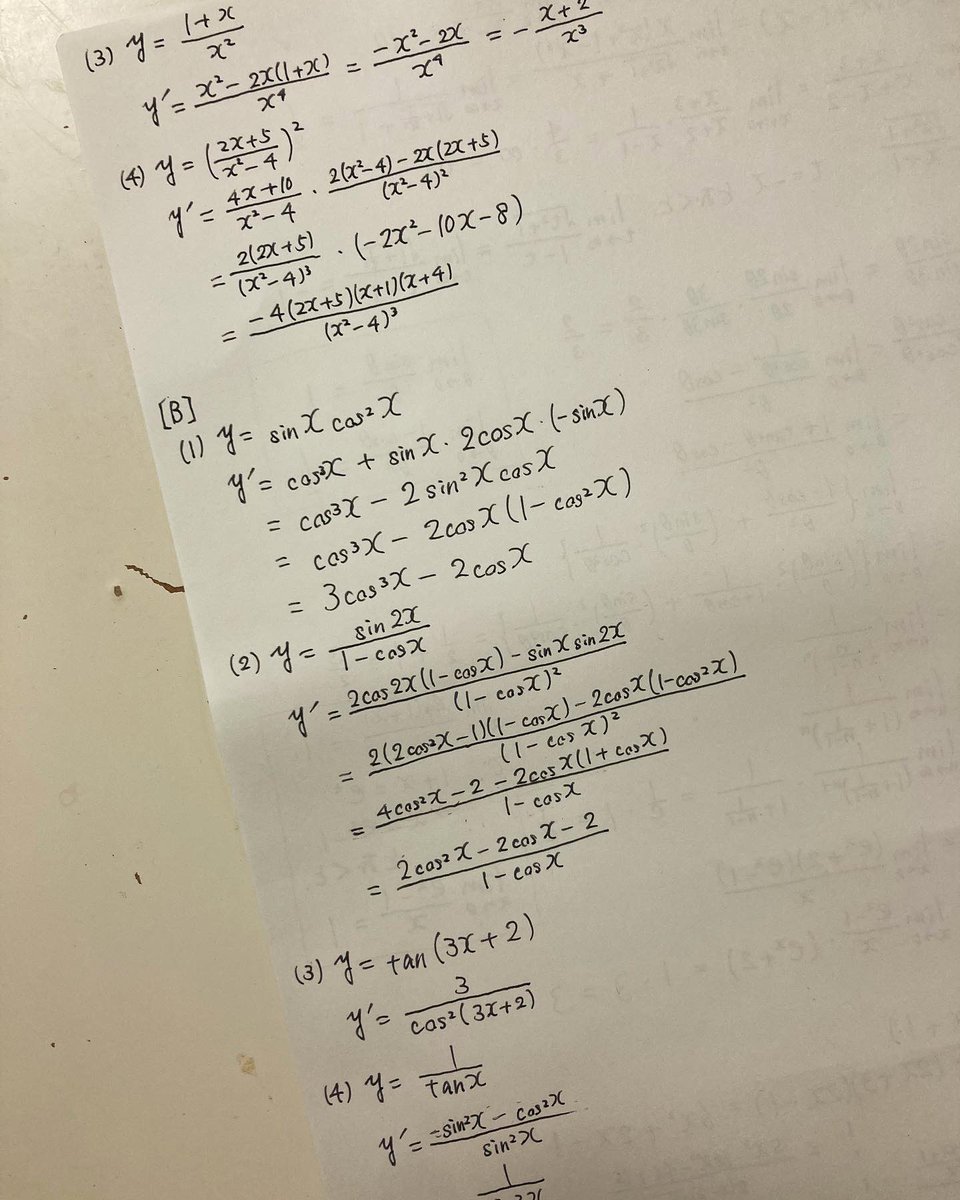 (3) y = (1+x)/x²
y' = (x² - 2x(1+x))/x⁴ = (-x² - 2x)/x⁴ = - (x+2)/x³
(4) y = ((2x+5)/(x²-4))²
y' = (4x+10)/(x²-4) · (2(x²-4) - 2x(2x+5))/(x²-4)²
= 2(2x+5)/(x²-4)³ · (-2x² - 10x - 8)
= -4(2x+5)(x+1)(x+4)/(x²-4)³
[B]
(1) y = sin x cos² x
y' = cos³x + sin x · 2cos x · (-sin x)
= cos³x - 2 sin² x cos x
= cos³x - 2cos x (1 - cos² x)
= 3cos³x - 2cos x
(2) y = sin 2x/(1 - cos x)
y' = (2cos 2x (1 - cos x) - sin x sin 2x)/(1 - cos x)²
= (2(2cos²x - 1)(1 - cos x) - 2cos x (1 - cos² x))/(1 - cos x)²
= (4cos² x - 2 - 2cos x (1 + cos x))/(1 - cos x)
= (2cos² x - 2cos x - 2)/(1 - cos x)
(3) y = tan (3x + 2)
y' = 3/cos² (3x+2)
(4) y = 1/tan x
y' = (-sin²x - cos²x)/sin²x